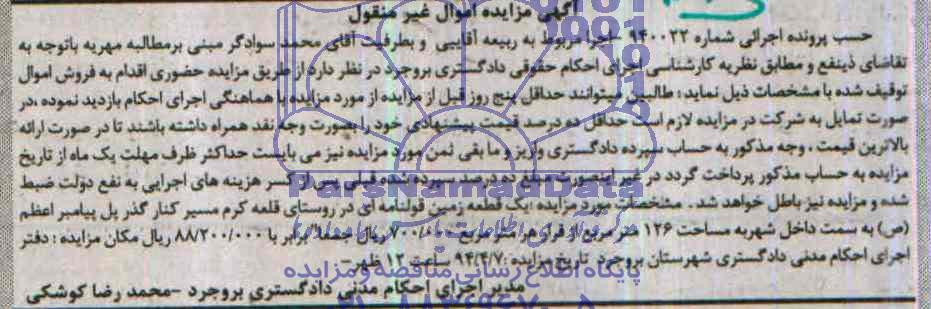 آگهی مزایده اموال غیر منقول
حسب پرونده اجرائی شماره ۹۴۰۰۲۲ -اجرا مربوط به ربیعه آقایی و بطرفیت آقای محمد سوادگر مبنی برمطالبه مهریه باتوجه به
تقاضای ذینفع و مطابق نظریه کارشناسی اجرای احکام حقوقی دادگستری بروجرد در نظر دارد از طریق مزایده حضوری اقدام به فروش اموال
توقیف شده با مشخصات ذیل نماید: طالبین میتوانند حداقل پنج روز قبل از مزایده از مورد مزایده با هماهنگی اجرای احکام بازدید نموده،در
صورت تمایل به شرکت در مزایده لازم است حداقل ده درصد قیمت پیشنهادی خود را بصورت وجه نقد همراه داشته باشند تا در صورت ارائه
بالاترین قیمت، وجه مذکور به حساب سپرده دادگستری واریز و ما بقی ثمن مورد مزایده نیز می بایست حداکثر ظرف مهلت یک ماه از تاریخ
مزایده به حساب مذکور پرداخت گردد در غیر اینصورت مبلغ ده درصد سپرده شده قبلی پس از کسر هزینه های اجرایی به نفع دولت ضبط
شده و مزایده نیز باطل خواهد شد. مشخصات مورد مزایده :یک قطعه زمین قولنامه ای در روستای قلعه کرم مسیر کنار گذر پل پیامبر اعظم
(ص) به سمت داخل شهربه مساحت ۱۲۶ متر مربع از قرار هر متر مربع ۷۰۰/۰۰۰ ریال جمعا" برابر با ۸۸/۲۰۰/۰۰۰ ریال مکان مزایده : دفتر
اجرای احکام مدنی دادگستری شهرستان بروجرد تاریخ مزایده :۹۴/۴/۷ ساعت ۱۲ ظهر-
مدیر اجرای احکام مدنی دادگستری بروجرد -محمد رضا کوشکی
ParsNamadData
پایگاه اطلاع رسانی مناقصه و مزایده